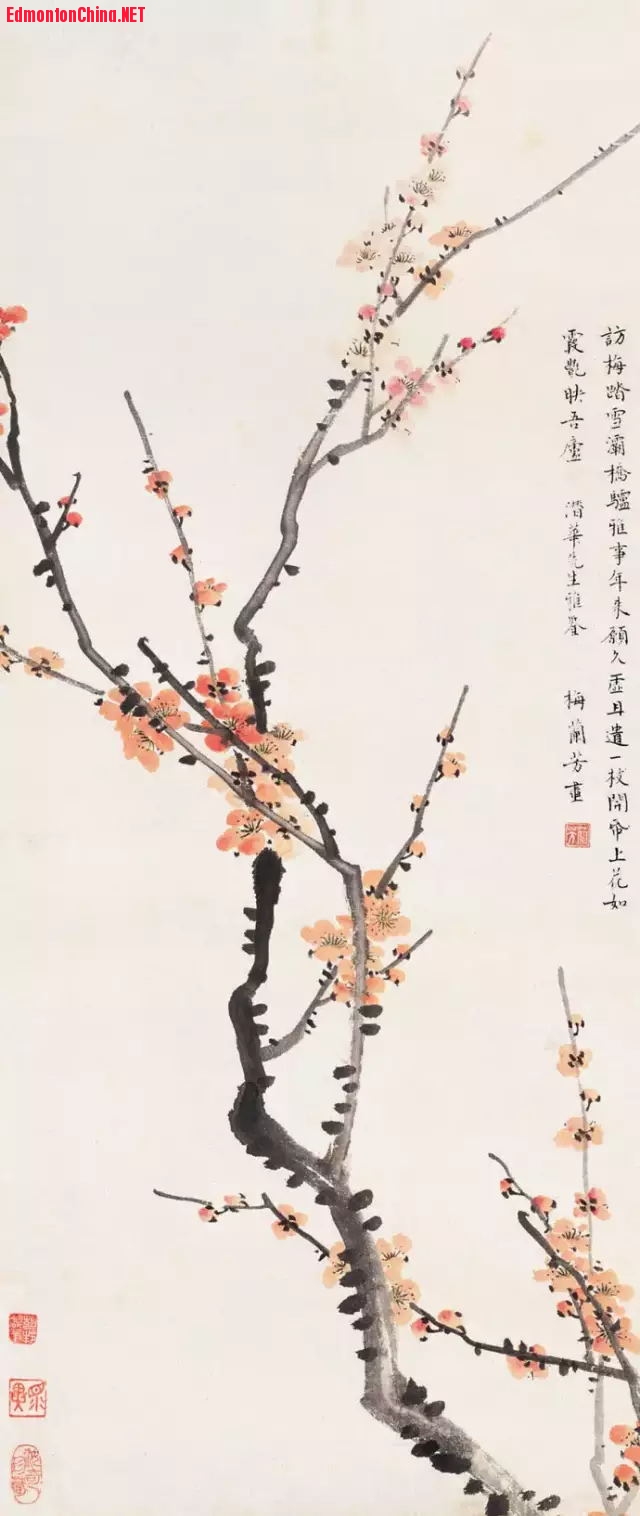 EdmontonChina.NET
訪梅踏雪灞橋驢雅事年來願久虛且遣一枝開帋上花如
霞豔映吾廬 潛華先生雅鑒 梅蘭芳畫